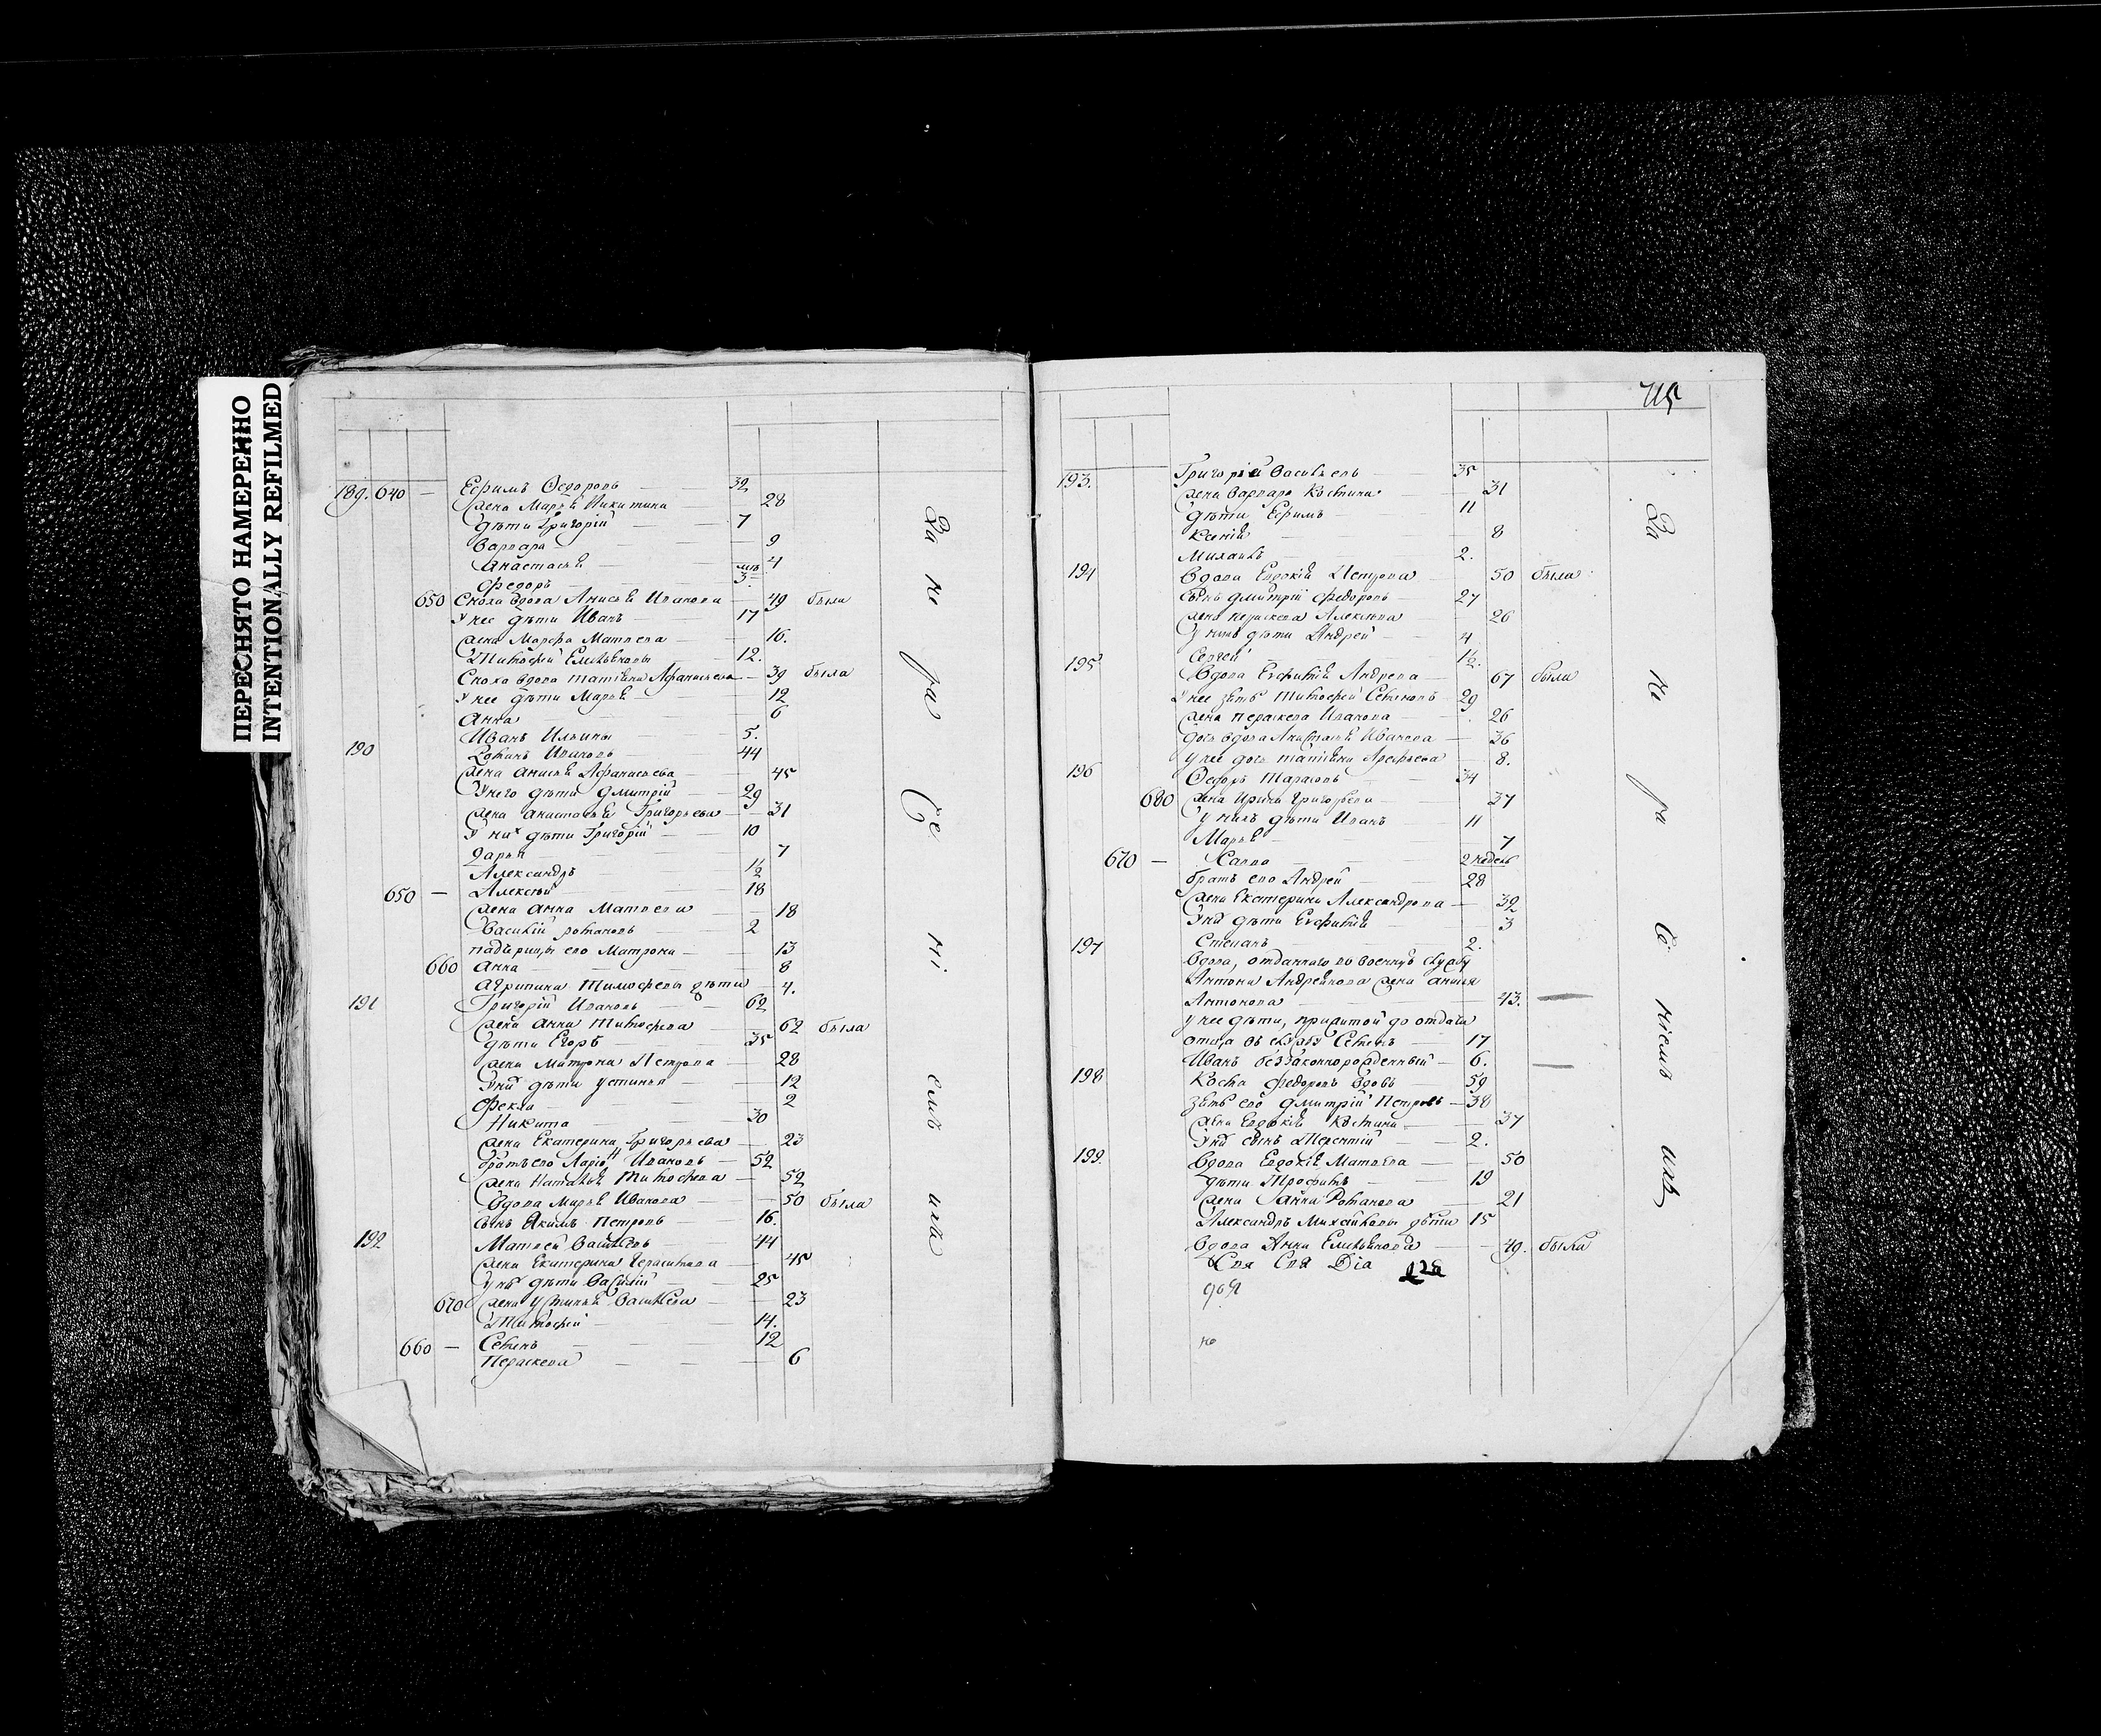 ПЕРЕСНЯТО НАМЕРЕННО
INTENTIONALLY REFILMED
189. 640 — Ефимъ Ѳедоровъ — 32
жена Марья Никитина 28
дѣти Григорій — 7
Варвара — 9
Анастасья — 4
Федоръ 3
650 Сноха вдова Анисья Иванова — 49 была
У нее дѣти Иванъ — 17
жена Марфа Матвеева — 16.
Тимофей Емельяновы — 12.
Сноха вдова Татіяна Афанасьева — 39 была
У нее дѣти Марья — 12
Анна 6
Иванъ Ильины 5.
190 Романъ Ивановъ 44
жена Анисья Афанасьева — 45
У него дѣти Дмитрій — 29
жена Анастасья Григорьева — 31
У них дѣти Григорій — 10
Дарья — 7
Александръ 1 1/2
650 — Алексѣй 18
жена Анна Матвеева — 18
Василій Романовъ 2
падчерицы его Матрона — 13
660 Анна — 8
Агрипина Тимофеевы дѣти 4.
191 Григорій Ивановъ — 62
жена Анна Тимофеева 62 была
дѣти Егоръ — 35
жена Матрона Петрова — 28
У них дѣти Устинья — 12
Фекла — 2
Никита — 30
жена Екатерина Григорьева — 23
братъ его Ларіонъ Ивановъ — 52
жена Наталья Тимофеева — 52
Вдова Марья Иванова — 50 была
сынъ Якимъ Петровъ — 16.
192 Матвей Васильевъ 44
жена Екатерина Герасимова — 45
У них дѣти Василій — 25
670 жена Устинья Васильева — 23
Тимофей — 14.
660 — Семенъ — 12
Пераскева — 6
За не ра Се ні емъ ихъ
715
193. Григорій Васильевъ — 35
жена Варвара Костина 31
дѣти Ефимъ — 11
Ксенія 8
Михаилъ 2.
194 Вдова Евдокія Петрова — 50 была
сынъ Дмитрій Федоровъ — 27
жена Пераскева Алексѣева — 26
У нихъ дѣти Андрей — 4
Сергей — 1 1/2.
195 Вдова Евфимія Андреева — 67 была
У нее зять Тимофей Семеновъ — 29
жена Пераскева Иванова — 26
дочь вдова Анастасья Иванова — 36
у нее дочь Татіяна Арефьева — 8.
196 Ѳедоръ Тарасовъ — 34
680 жена Ирина Григорьева — 37
У нихъ дѣти Иванъ — 11
Марья 7
670 — Савва — 2 недель
братъ его Андрей — 28
жена Екатерина Александрова — 32
У них дѣти Евфимія 3
Степанъ — 2.
197 Вдова, отданнаго въ военную службу
Антона Андреянова жена Анисья
Антонова — 43. —
у нее дѣти, прижитой до отдачи
отца въ службу Семенъ — 17
Иванъ беззаконнорожденный — 6. —
198 Косма Федоровъ вдовъ — 59
зять его Дмитрій Петровъ — 38
жена Евдокія Костина — 37
У них сынъ Терентій — 2.
199. Вдова Евдокія Матвеева — 50
дѣти Трофимъ — 19
жена Анна Романова — 21
Александръ Михайловы дѣти 15
Вдова Анна Емельянова — 49. была
За не ра Се ніемъ ихъ